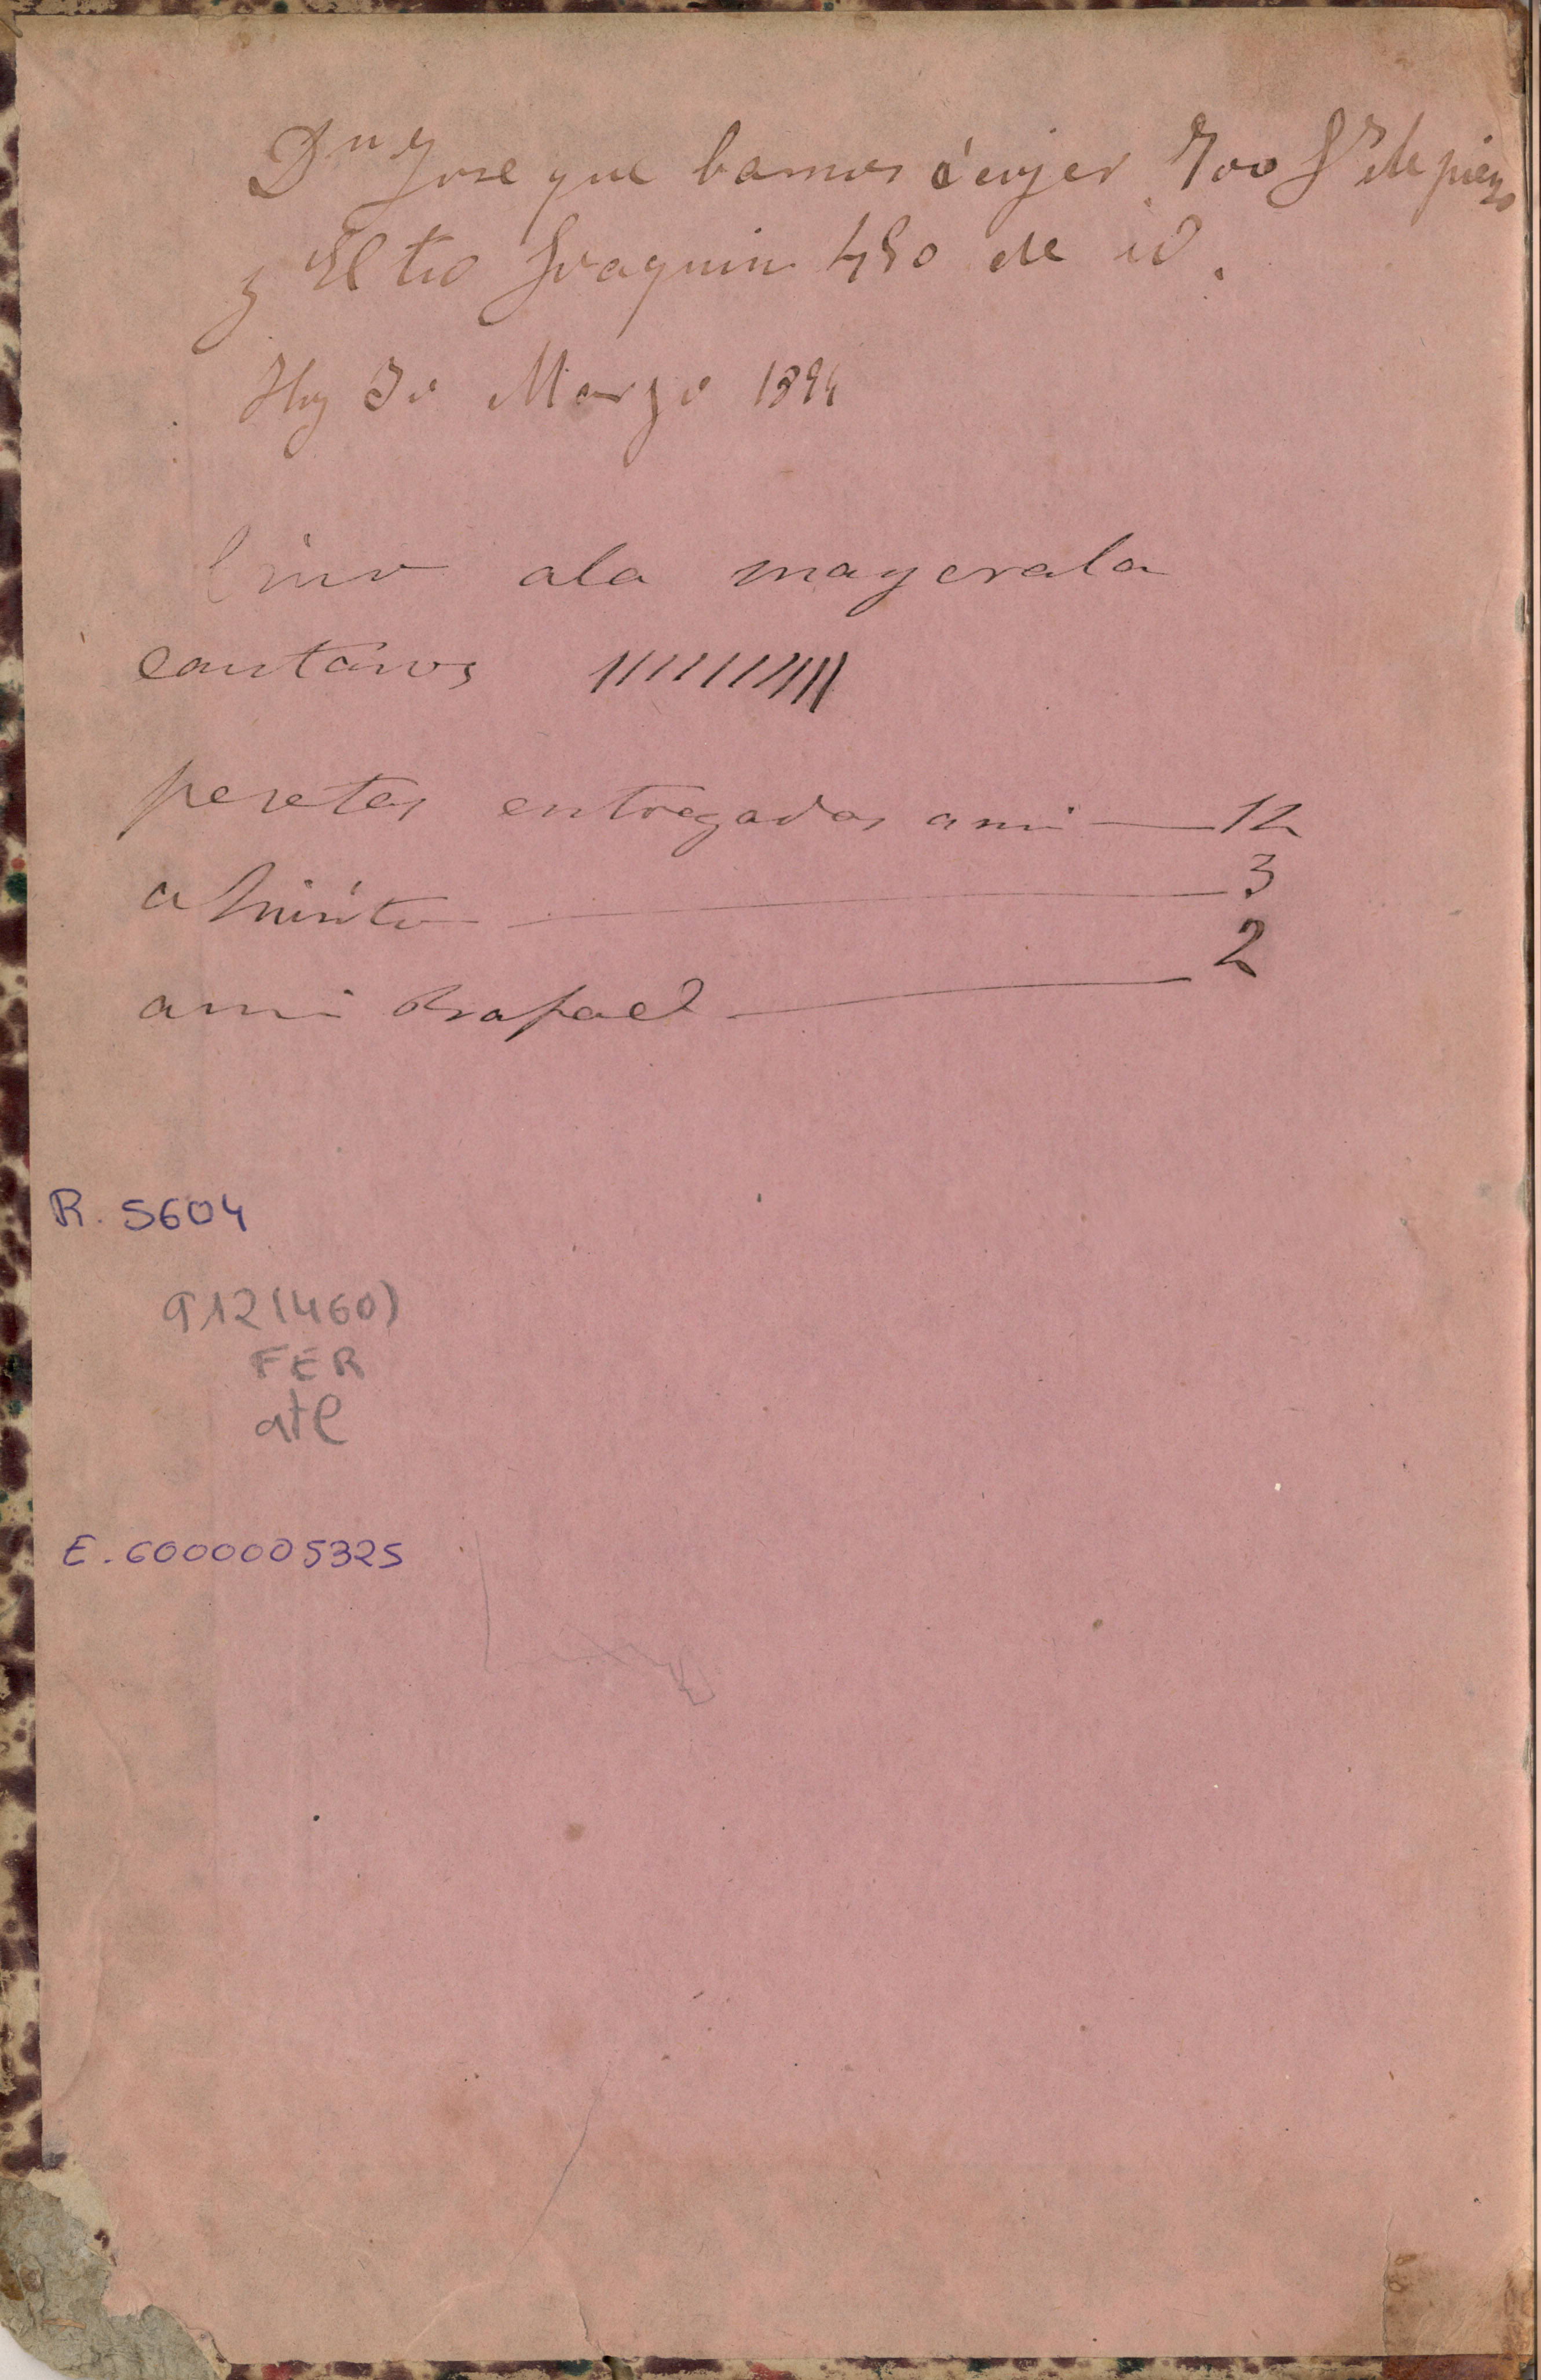 Dn Jose que bamos a cojer 700 fs de pienso
y El tio Joaquin 450 de id.
Hoy 30 Marzo 1894
bino ala mayorala
cantaros ///////////
pesetas entregadas ami — 12
a — 3
ami Rafael — 2
R. 5604
912(460)
FER
atl
E. 6000005325